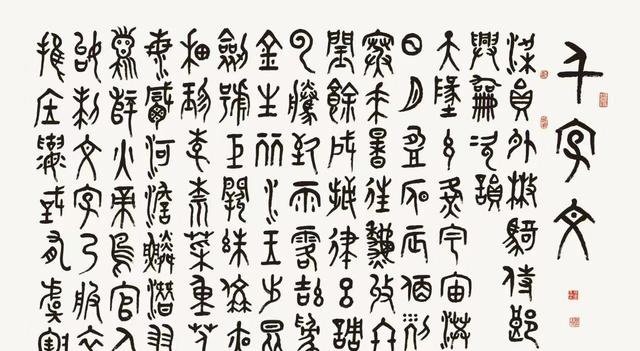 千字文
梁員外散騎侍郎
興嗣次韻
天地玄黃宇宙洪
日月盈昃辰宿列
寒來暑往秋收冬
閏餘成歲律呂調
雲騰致雨露結為
金生麗水玉出崑
劍號巨闕珠稱夜
果珍李柰菜重芥
海鹹河淡鱗潛羽
龍師火帝鳥官人
始制文字乃服衣
推位讓國有虞陶